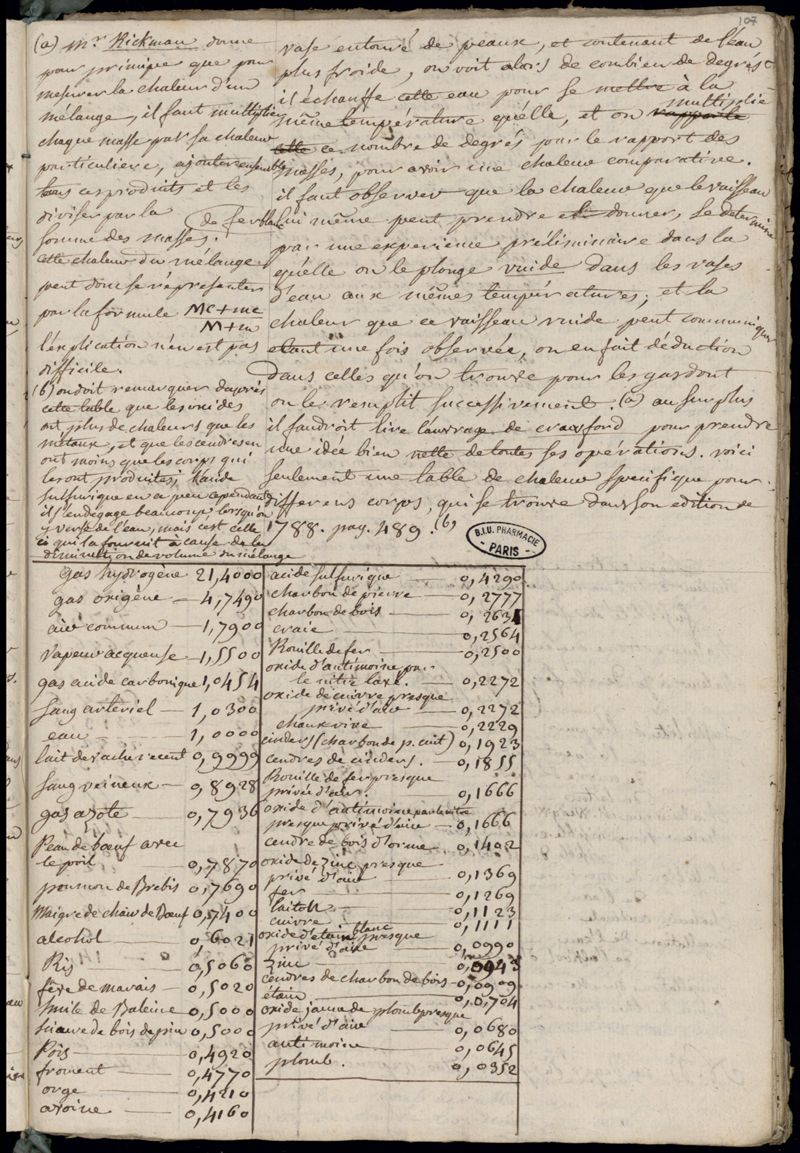 107
(a) Mr. Kickman donne
pour principe que pour
mesurer la chaleur d'un
mélange, il faut multiplier
chaque masse par sa chaleur
particuliere, ajouter ensemble
tous ces produits et les
diviser par la
somme des masses.
cette chaleur du mélange
peut donc se représenter
par la formule MC+mc
M+m
l'explication n'en est pas
difficile.
(b) on doit remarquer d'après
cette table que les oxides
ont plus de chaleurs que les
métaux, et que les cendres en
ont moins que les corps qui
les ont produites, l'acide
sulfurique en a peu cependant
il s'en dégage beaucoup lorsqu'on
y verse de l'eau, mais c'est celle
ci qui la fournit à cause de la
diminution de volume du mélange
vase entouré de peaux, et contenant de l'eau
plus froide, on voit alors de combien de degrés
il échauffe cette eau pour se mettre à la
même température qu'elle, et on rapporte multiplie
cette ce nombre de degrés pour le rapport des
masses, pour avoir une chaleur comparative.
il faut observer que la chaleur que le vaisseau
de fer blanc lui même peut prendre et donner, se détermine
par une experience préliminaire dans la
qu'elle on le plonge vuide dans les vases
d'eau aux mêmes températures; et la
chaleur que ce vaisseau vuide peut communiquer
étant une fois observée, on en fait déduction
dans celles qu'on trouve pour les gas dont
on le remplit successivement. (a) au surplus
il faudroit lire l'ouvrage de crawford pour prendre
une idée bien nette de toutes ses opérations. voici
seulement une table de chaleur specifique pour
differens corps, qui se trouve dans son edition de
1788. pag. 489. (b)
B.I.U. PHARMACIE
PARIS
gas hydrogène 21,4000
gas oxigène — 4,7490
air commun — 1,7900
vapeur acqueuse — 1,5500
gas acide carbonique 1,0454
sang arteriel — 1,0300
eau — 1,0000
lait de vache recent 0,9999
sang veineux — 0,8928
gas azote — 0,7936
Peau de bœuf avec
le poil 0,7870
poumon de Brebis 0,7690
Maigre de chair de Bœuf 0,7400
alcohol — 0,6021
Ris — 0,5060
fève de marais — 0,5020
huile de Baleine 0,5000
sciure de bois de pin 0,5000
Pois — 0,4920
froment — 0,4770
orge — 0,4210
avoine — 0,4160
acide sulfurique — 0,4290
charbon de pierre — 0,2777
charbon de bois — 0,2631
craie — 0,2564
Rouille de fer — 0,2500
oxide d'antimoine par
le nitre lavé. — 0,2272
oxide de cuivre presque
privé d'air — 0,2272
chaux vive — 0,2229
cinders (charbon de p. cuit) 0,1923
cendres de cinders. — 0,1855
Rouille de fer presque
privée d'air. — 0,1666
oxide d'antimoine par le nitre
presque privé d'air — 0,1666
cendre de bois d'orme — 0,1402
oxide de zinc presque
privé d'air — 0,1369
fer — 0,1269
laiton — 0,1123
cuivre — 0,1111
oxide d'étain blanc presque
privé d'air — 0,0990
zinc — 0,0943
cendres de charbon de bois — 0,0909
étain — 0,0704
oxide jaune de plomb presque
privé d'air — 0,0680
antimoine — 0,0645
plomb. — 0,0352